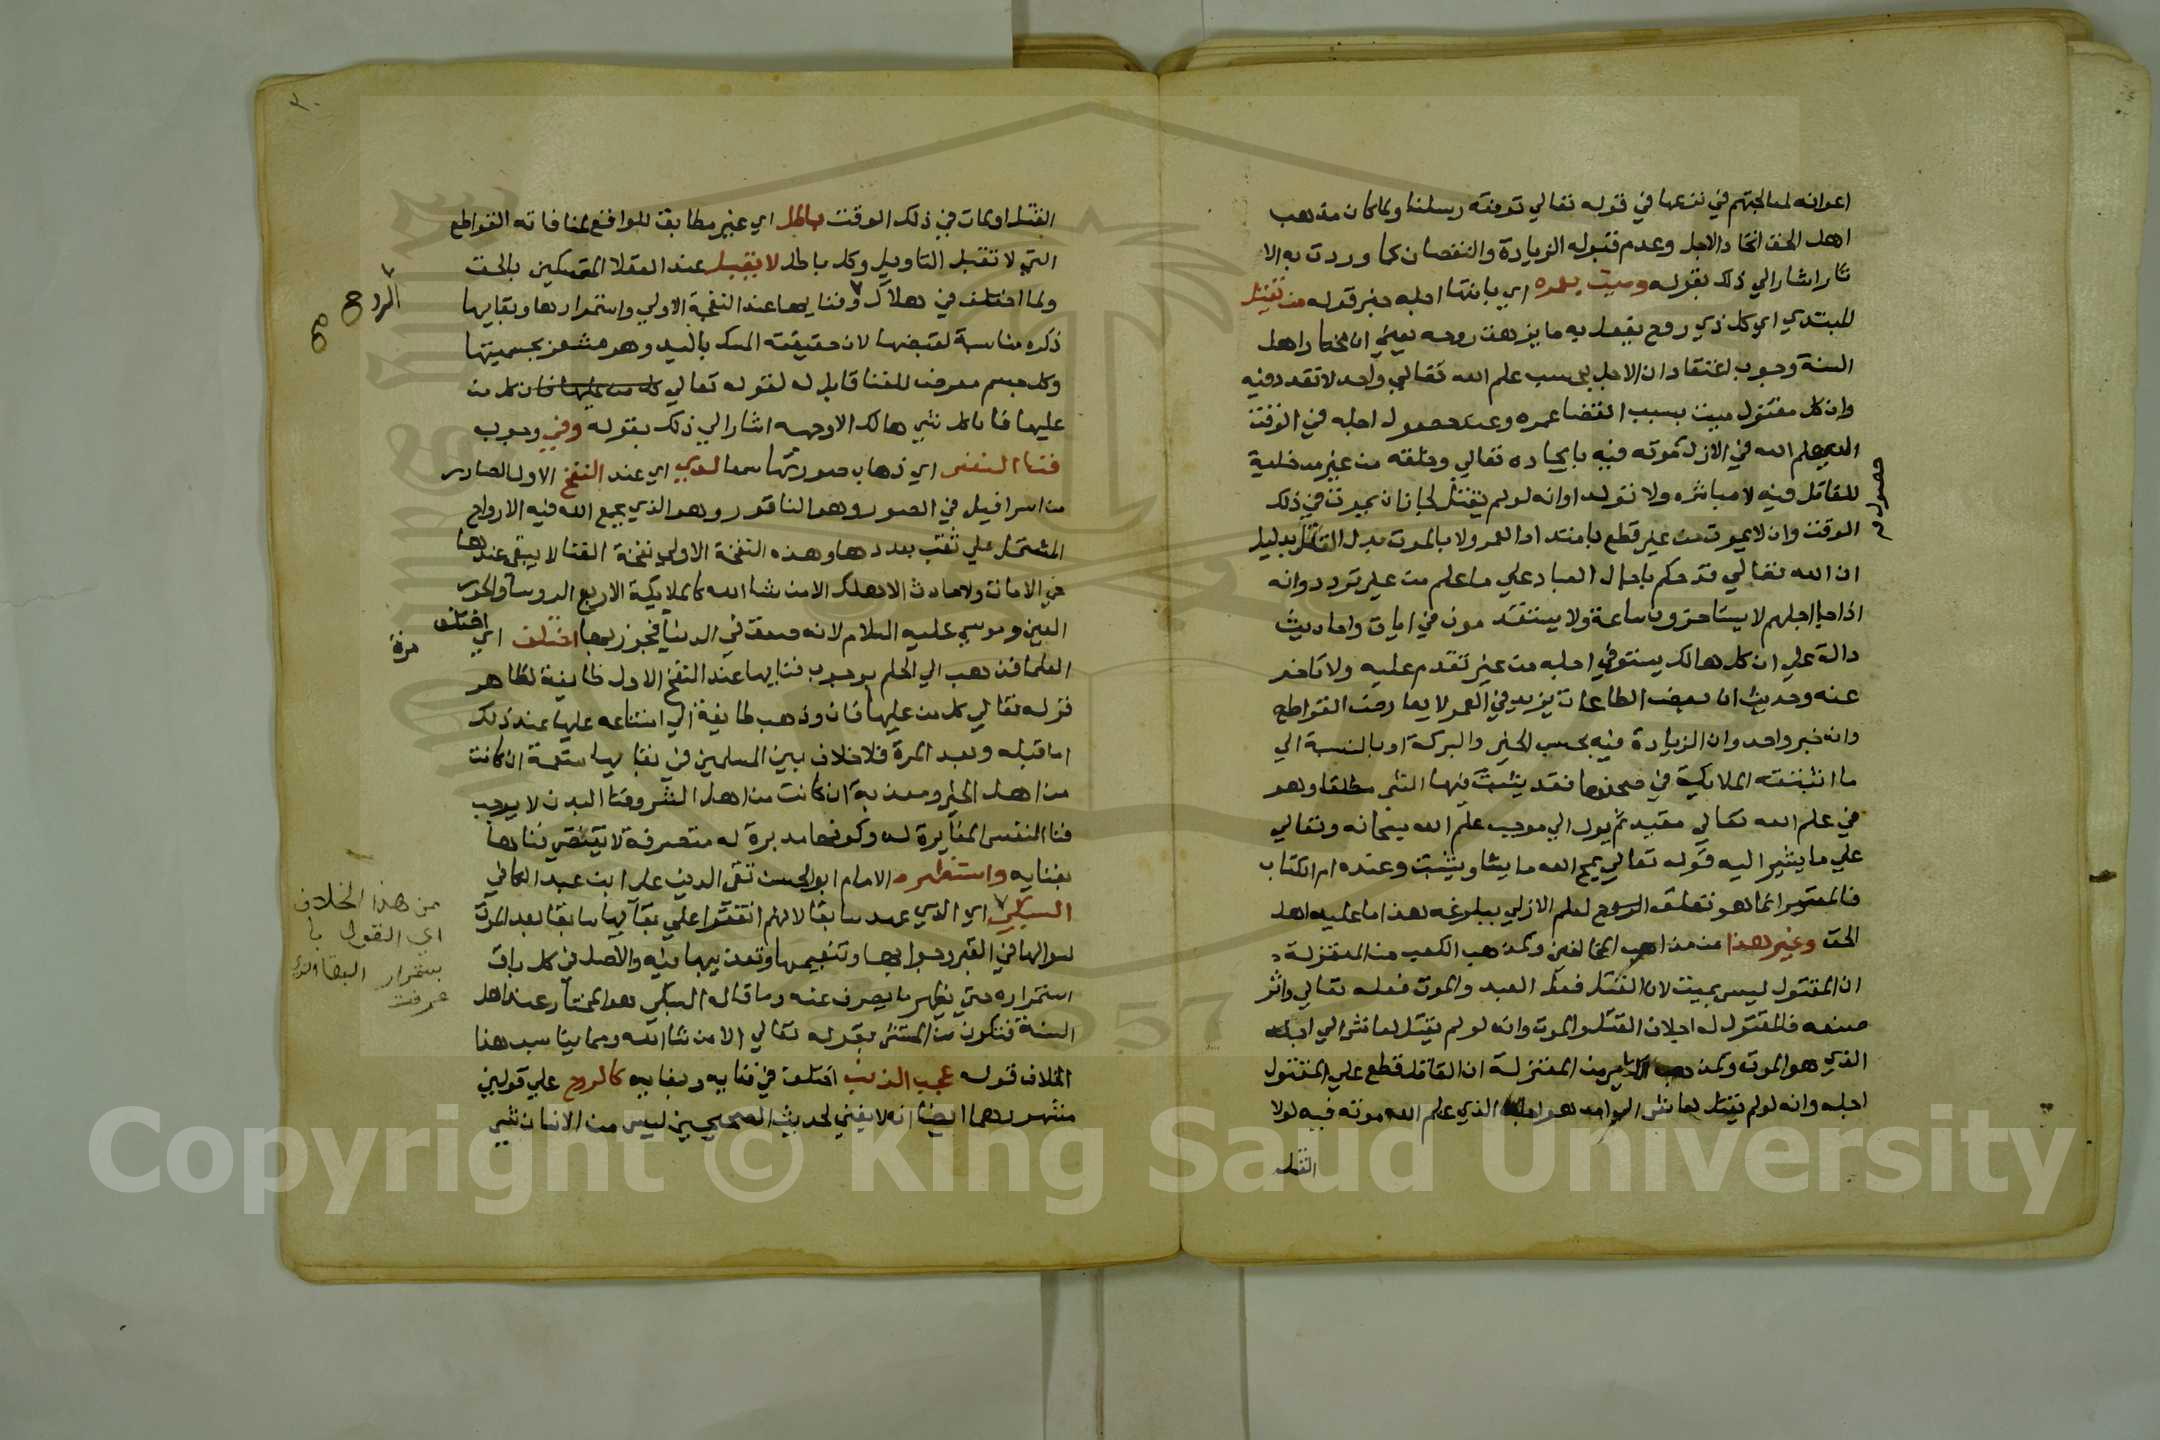 اعوانه لمعالجتهم في نزعها في قوله تعالي توفته رسلنا ولما كان مذهب
اهل الحق اتحاد الاجل وعدم قبوله الزيادة والنقصان كما وردت به الا
ثار اشار الي ذلك بقوله وميت بعمره اي بانتها اجله خبر قوله من يقتل
للمبتدي اي كل ذي روح يفعل به ما يزهق روحه يعني ان مختار اهل
السنة وجوب اعتقاد ان الاجل بحسب علم الله تعالي واحد لا تعدد فيه
وان كل مقتول ميت بسبب انقضا عمره وعند حصول اجله في الوقت
الذي علم الله في الازل موته فيه بايجاده تعالي وخلقه من غير مدخلية
للقاتل فيه لا مباشرة ولا تولد اوانه لو لم يقتل لجاز ان يموت في ذلك
الوقت وان لا يموت من غير قطع بامتداد العمر ولا بالموت بدل القتل بدليل
ان الله تعالي قد حكم باجال العباد علي ما علم من غير تردد وانه
اذا جا اجلهم لا يستاخرون ساعة ولا يستقدمون في ايات واحاديث
دالة علي ان كل هالك يستوفي اجله من غير تقدم عليه ولا تاخر
عنه وحديث ان بعض الطاعات يزيد في العمر لا يعارض القواطع
وانه خبر واحد وان الزيادة فيه بحسب الخير والبركة او بالنسبة الي
ما اثبتته الملايكة في صحفها فقد يثبت فيها الشي مطلقا وهو
في علم الله تعالي مقيد ثم يول الي موجب علم الله سبحانه وتعالي
علي ما يشير اليه قوله تعالي يمح الله ما يشا ويثبت وعنده ام الكتاب
فالمعتبر انما هو تعلق العلم الازلي ببلوغه هذا ما عليه اهل
الحق وغير هذا من مذاهب المخالفين كمذهب الكعبي من المعتزلة
ان المقتول ليس بميت لان القتل فعل العبد والموت فعله تعالي واثر
صنعه فالمقتول له اجلان القتل والموت وانه لو لم يقتل لعاش الي اجله
الذي هو الموت وكمذهب من المعتزلة ان القاتل قطع علي المقتول
اجله وانه لو لم يقتل لعاش الي امد هو اجله الذي علم الله موته فيه لولا
القتل
حصول
٣٠
القتل او مات في ذلك الوقت باطل اي غير مطابق للواقع لمنافاته القواطع
التي لا تقبل التاويل وكل باطل لا يقبل عند العقلا المتمسكين بالحق
ولما اختلف في هلاك وفنايها عند النفخة الاولي واستمرارها وبقايها
الروح
ذكره مناسبة لقبضها لان حقيقته المسك باليد وهو مشعر بجسميتها
وكل جسم معرض للفنا قابل له لقوله تعالي كل من عليها فان كل من
عليها فان كل شي هالك الا وجهه اشار الي ذلك بقوله وفي وجوب
فنا النفس اي ذهاب صورتها سمعا لدي اي عند النفخ الاول الصادر
من اسرافيل في الصور وهو الناقور وهو الذي يجمع الله فيه الارواح
المشتمل علي ثقب بعددها وهذه النفخة الاولي نفخة الفنا لا يبقي عندها
حي الا مات ولا حادث الا هلك الا من شا الله كالملايكة الاربع الروسا والحور
العين وموسي عليه السلام لانه صعق في الدنيا فجوزي بها اختلف اي اختلف
مرة
العلما فذهب الي الحكم بوجوب فنايها عند النفخ الاول طايفة لظاهر
قوله تعالي كل من عليها فان وذهب طايفة الي امتناعه عليها عند ذلك
اما قبله وبعد المرة فلا خلاف بين المسلمين في بقايها منعمة ان كانت
من اهل الخير ومعذبة ان كانت من اهل الشر وفنا البدن لا يوجب
فنا النفس المغايرة له وكونها مدبرة له متصرفة لا يقتضي فناها
بفنايه واستظهر الامام ابو الحسن تقي الدين علي ابن عبد الكافي
السبكي اي الذي عهد سابقا لانهم اتفقوا علي بقايها سابقا بعد الموت
لسوالها في القبر وجوابها وتنعيمها وتعذيبها فيه والاصل في كل باق
استمراره حتي يظهر ما يصرف عنه وما قاله السبكي هو المختار عند اهل
السنة فتكون من المستثني بقوله تعالي الا من شا الله ومما يناسب هذا
الخلاف قوله عجب الذنب اختلف في فنايه وبقايه كالروح علي قولين
مشهور وهما ايضا انه لا يفني لحديث الصحيحين ليس من الانسان شي
من هذا الخلاف
اي القول با
ستمرار البقا الذي
عرفت
Copyright © King Saud University
1957